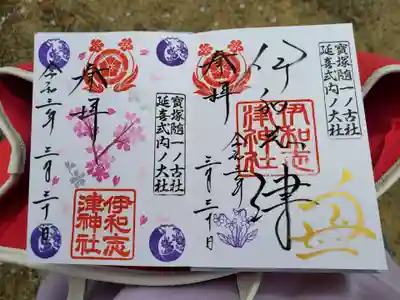 寶塚隨一ノ古社
延喜式内ノ大社
奉拝
伊和志津
伊和志
津神社
令和三年
三月三十日
寶塚隨一ノ古社
延喜式内ノ大社
奉拝
令和三年
三月三十日
伊和志
津神社